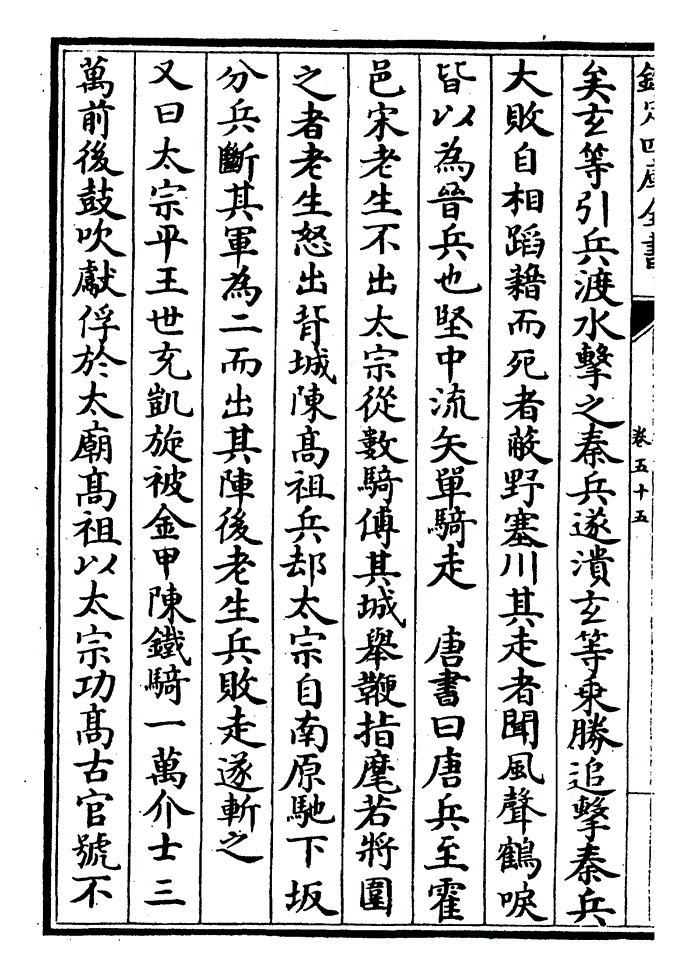 欽定四庫全書
卷五十五
矣玄等引兵渡水擊之秦兵遂潰玄等乘勝追擊秦兵
大敗自相蹈藉而死者蔽野塞川其走者聞風聲鶴唳
皆以為晉兵也堅中流矢單騎走　唐書曰唐兵至霍
邑宋老生不出太宗從數騎傅其城舉鞭指麾若將圍
之者老生怒出背城陳高祖兵却太宗自南原馳下坂
分兵斷其軍為二而出其陣後老生兵敗走遂斬之
又曰太宗平王世充凱旋被金甲陳鐵騎一萬介士三
萬前後鼓吹獻俘於太廟髙祖以太宗功髙古官號不